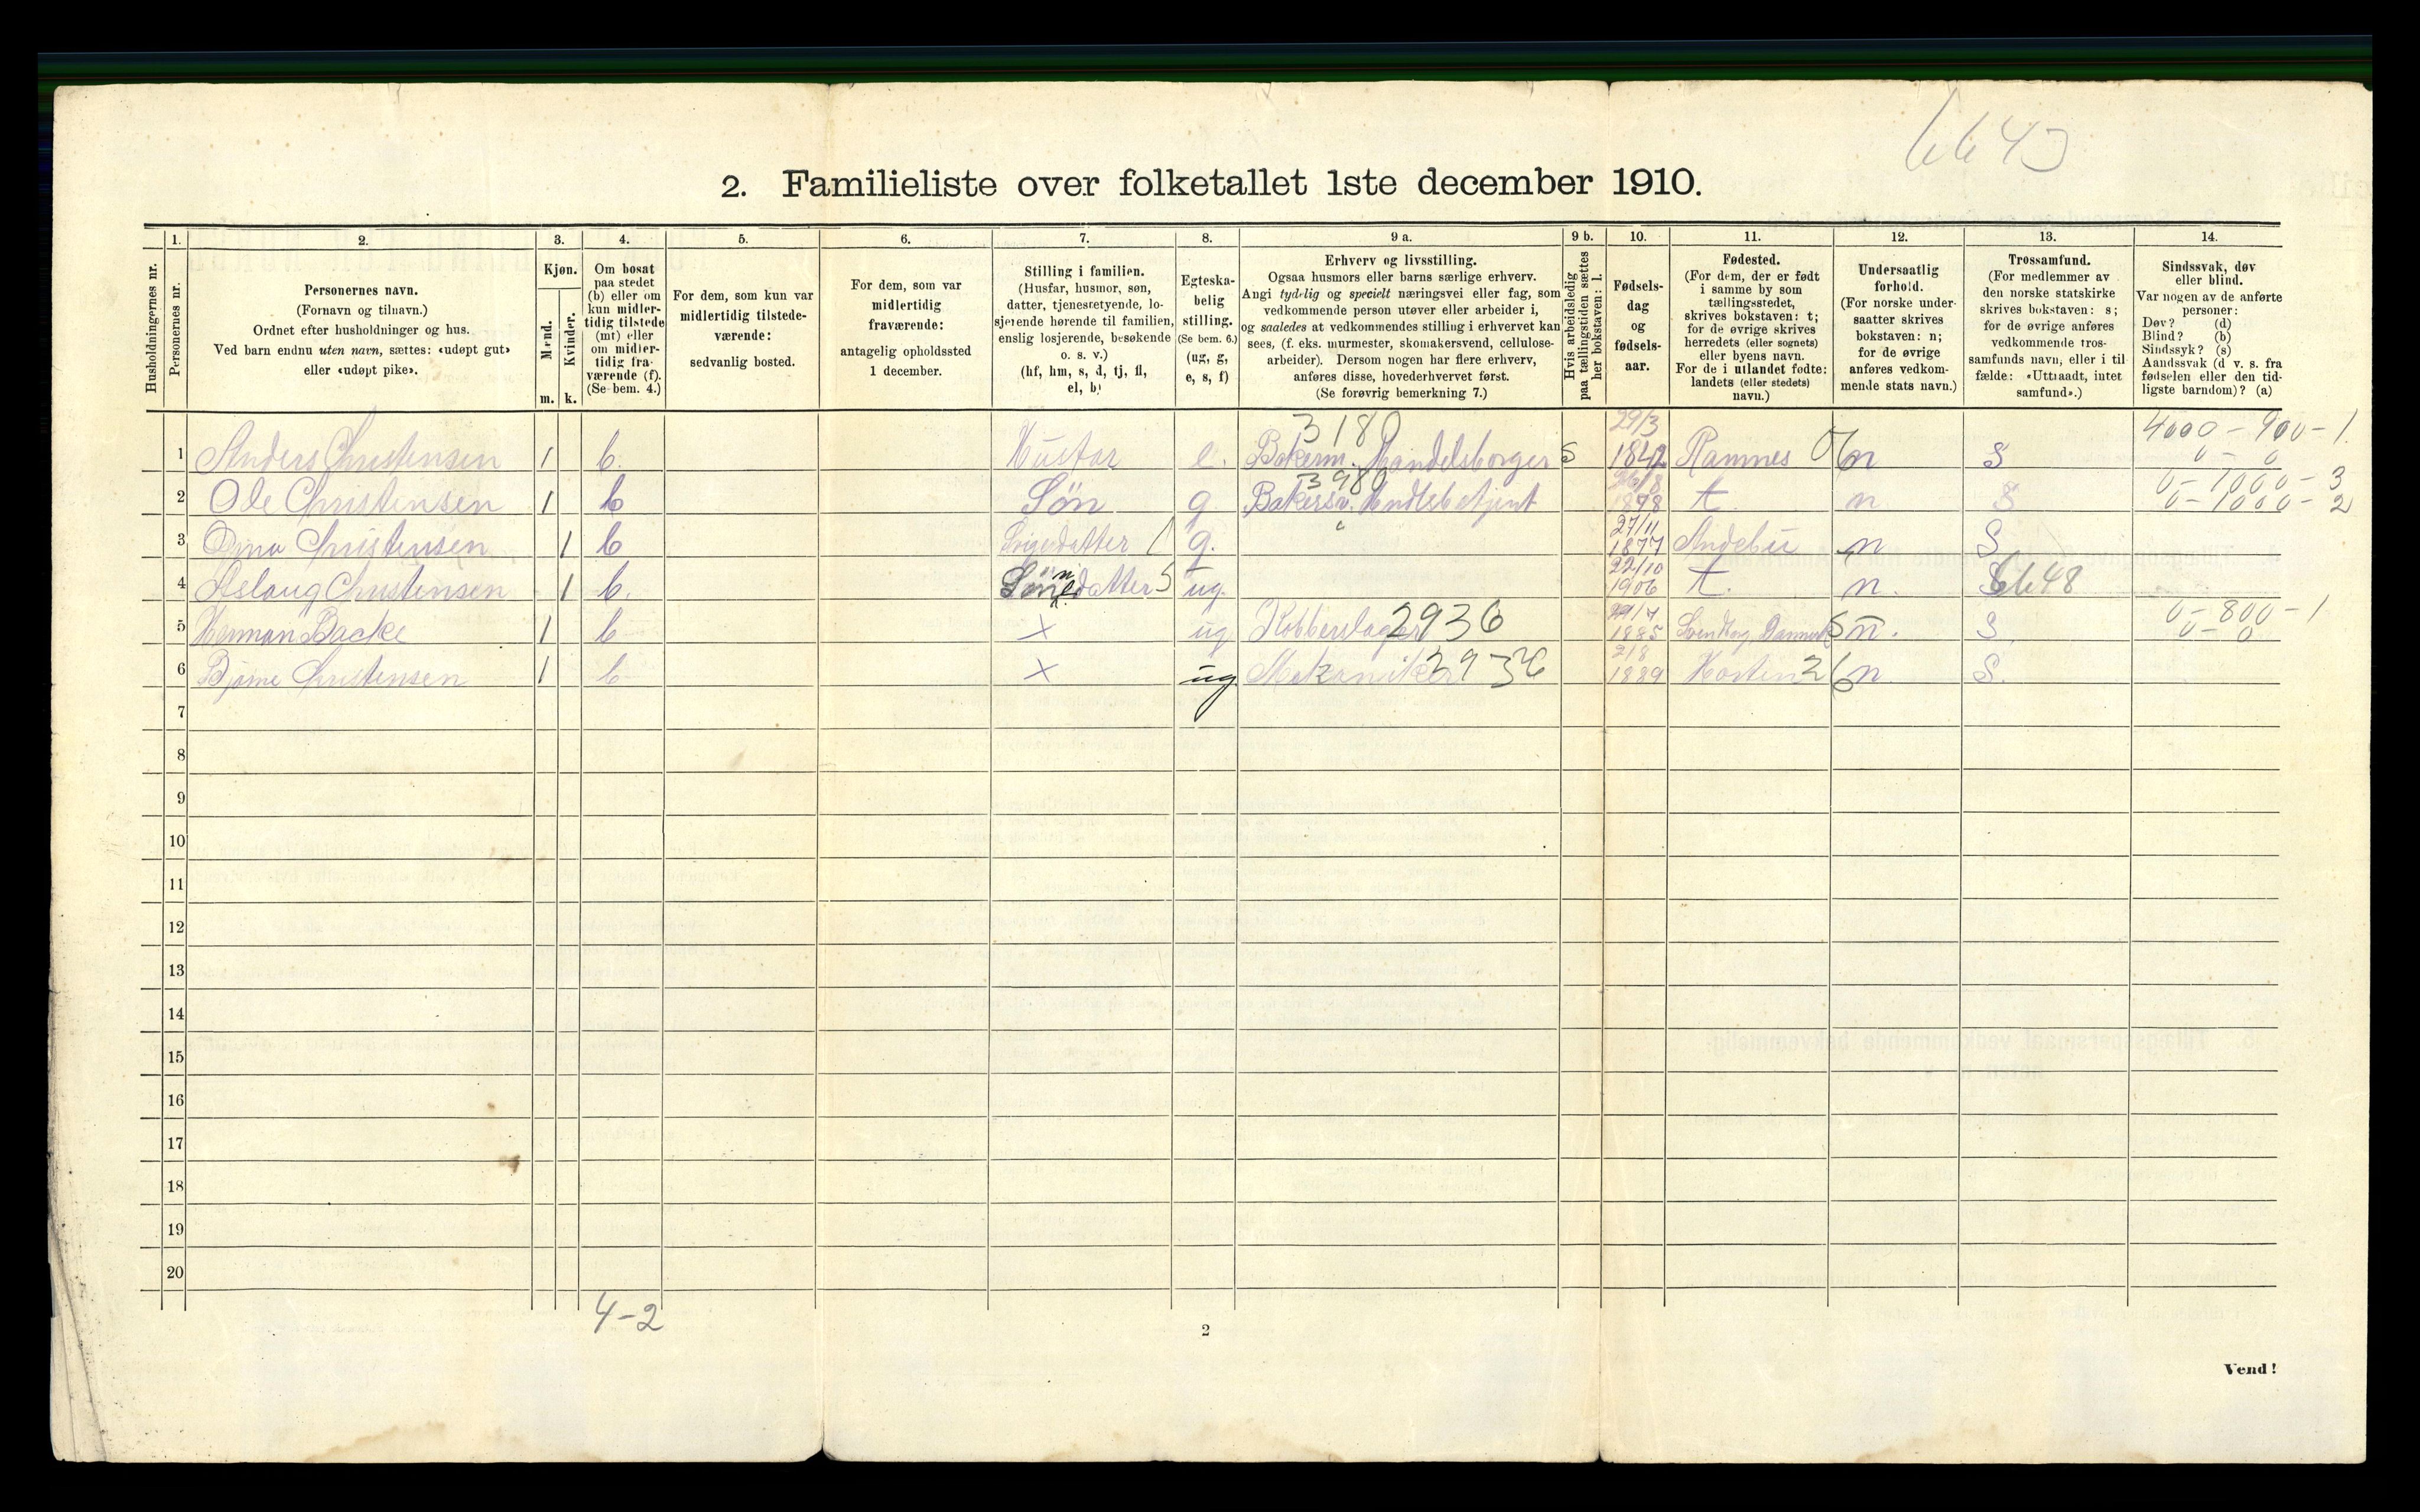 6643
2. Familieliste over folketallet 1ste december 1910.
1. 2. 3. 4. 5. 6. 7. 8. 9 a. 9 b. 10. 11. 12. 13. 14.
Husholdningernes nr.
Personernes nr.
Personernes navn.
(Fornavn og tilnavn.)
Ordnet efter husholdninger og hus.
Ved barn endnu uten navn, sættes: «udøpt gut»
eller «udøpt pike».
Kjøn.
Mænd.
Kvinder.
m. k.
Om bosat
paa stedet
(b) eller om
kun midler-
tidig tilstede
(mt) eller
om midler-
tidig fra-
værende (f).
(Se bem. 4.)
For dem, som kun var
midlertidig tilstede-
værende:
sedvanlig bosted.
For dem, som var
midlertidig
fraværende:
antagelig opholdssted
1 december.
Stilling i familien.
(Husfar, husmor, søn,
datter, tjenestetyende, lo-
sjerende hørende til familien,
enslig losjerende, besøkende
o. s. v.)
(hf, hm, s, d, tj, fl,
el, b)
Egteska-
belig
stilling.
(Se bem. 6.)
(ug, g,
e, s, f)
Erhverv og livsstilling.
Ogsaa husmors eller barns særlige erhverv.
Angi tydelig og specielt næringsvei eller fag, som
vedkommende person utøver eller arbeider i,
og saaledes at vedkommendes stilling i erhvervet kan
sees, (f. eks. murmester, skomakersvend, cellulose-
arbeider). Dersom nogen har flere erhverv,
anføres disse, hovederhvervet først.
(Se forøvrig bemerkning 7.)
Hvis arbeidsledig
paa tællingstiden sættes
her bokstaven: l.
Fødsels-
dag
og
fødsels-
aar.
Fødested.
(For dem, der er født
i samme by som
tællingsstedet,
skrives bokstaven: t;
for de øvrige skrives
herredets (eller sognets)
eller byens navn.
For de i utlandet fødte:
landets (eller stedets)
navn.)
Undersaatlig
forhold.
(For norske under-
saatter skrives
bokstaven: n;
for de øvrige
anføres vedkom-
mende stats navn.)
Trossamfund.
(For medlemmer av
den norske statskirke
skrives bokstaven: s;
for de øvrige anføres
vedkommende tros-
samfunds navn, eller i til-
fælde: «Uttraadt, intet
samfund».)
Sindssvak, døv
eller blind.
Var nogen av de anførte
personer:
Døv? (d)
Blind? (b)
Sindssyk? (s)
Aandssvak (d. v. s. fra
fødselen eller den tid-
ligste barndom)? (a)
3180 29/3 4000 - 900 - 1.
1 Anders Christensen 1 b. Husfar e. Bakerm. Handelsborger S 1842 Ramnes 06 n S 0 - 0
3980 26/8 0 - 1000 - 3
2 Ole Christensen 1 b Søn g Bakersv. Hndlsbetjent 1878 t. n S 0 - 1000 - 2
27/11
3 Christensen 1 b Svigerdatter g. 1877 Andebu n S
22/10
4 Aslaug Christensen 1 b. Sønnedatter S ug. 1906 t. n. S 6648
0 - 800 - 1
5 Herman Backe 1 b x ug Kobberslager 2936 1885 Danmark n. S. 0 - 0
2/8
6 Bjarne Christensen 1 b x ug Mekaniker 2936 1889 Horten 26 n. S.
7
8
9
10
11
12
13
14
15
16
17
18
19
20
4-2
2
Vend!